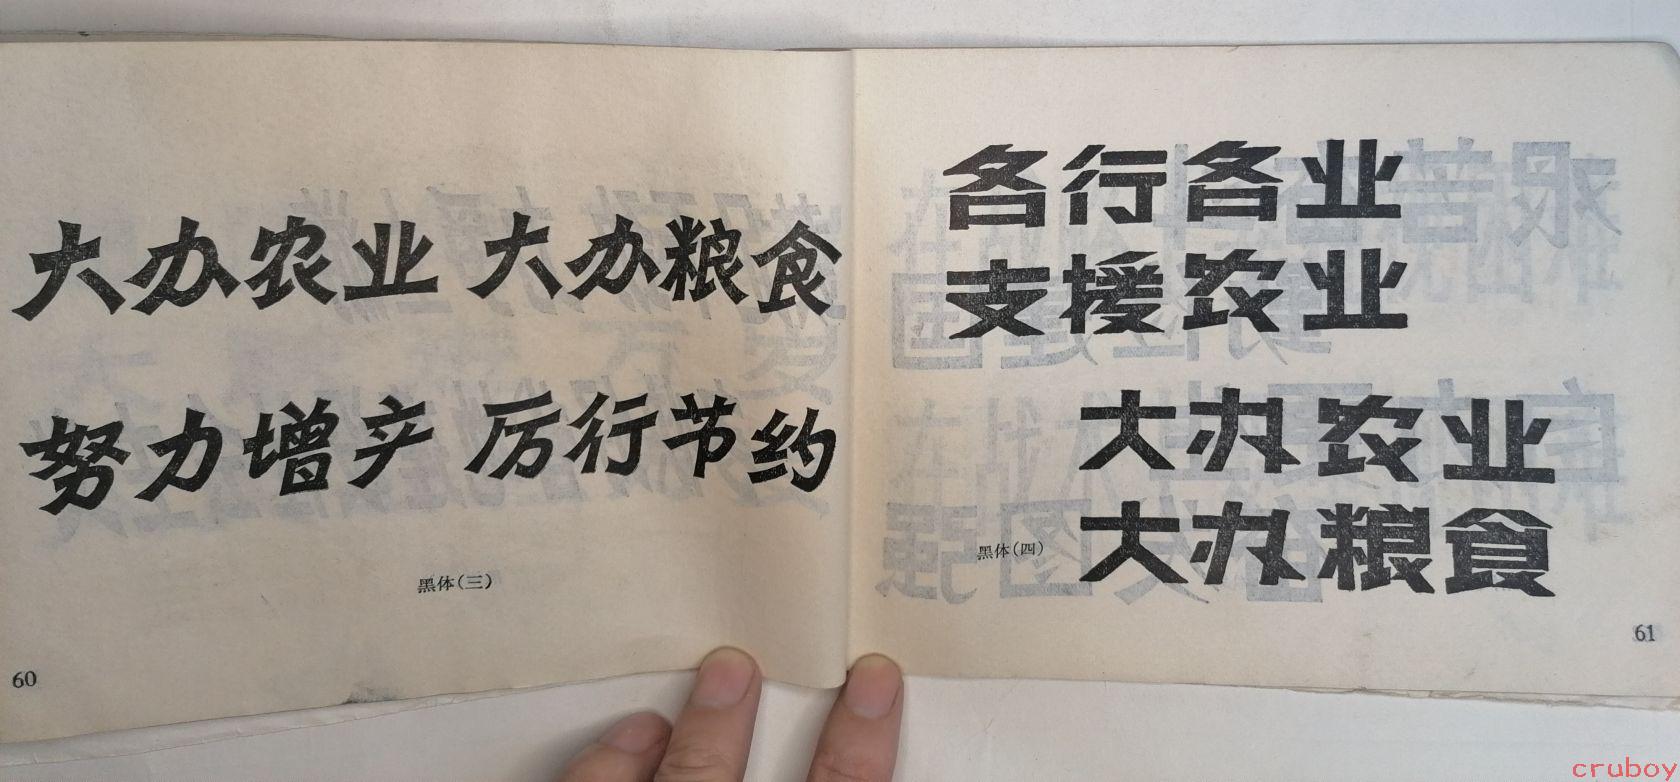 大办农业 大办粮食
努力增产 厉行节约
黑体(三)
60
各行各业
支援农业
大办农业
大办粮食
黑体(四)
61
cruboy